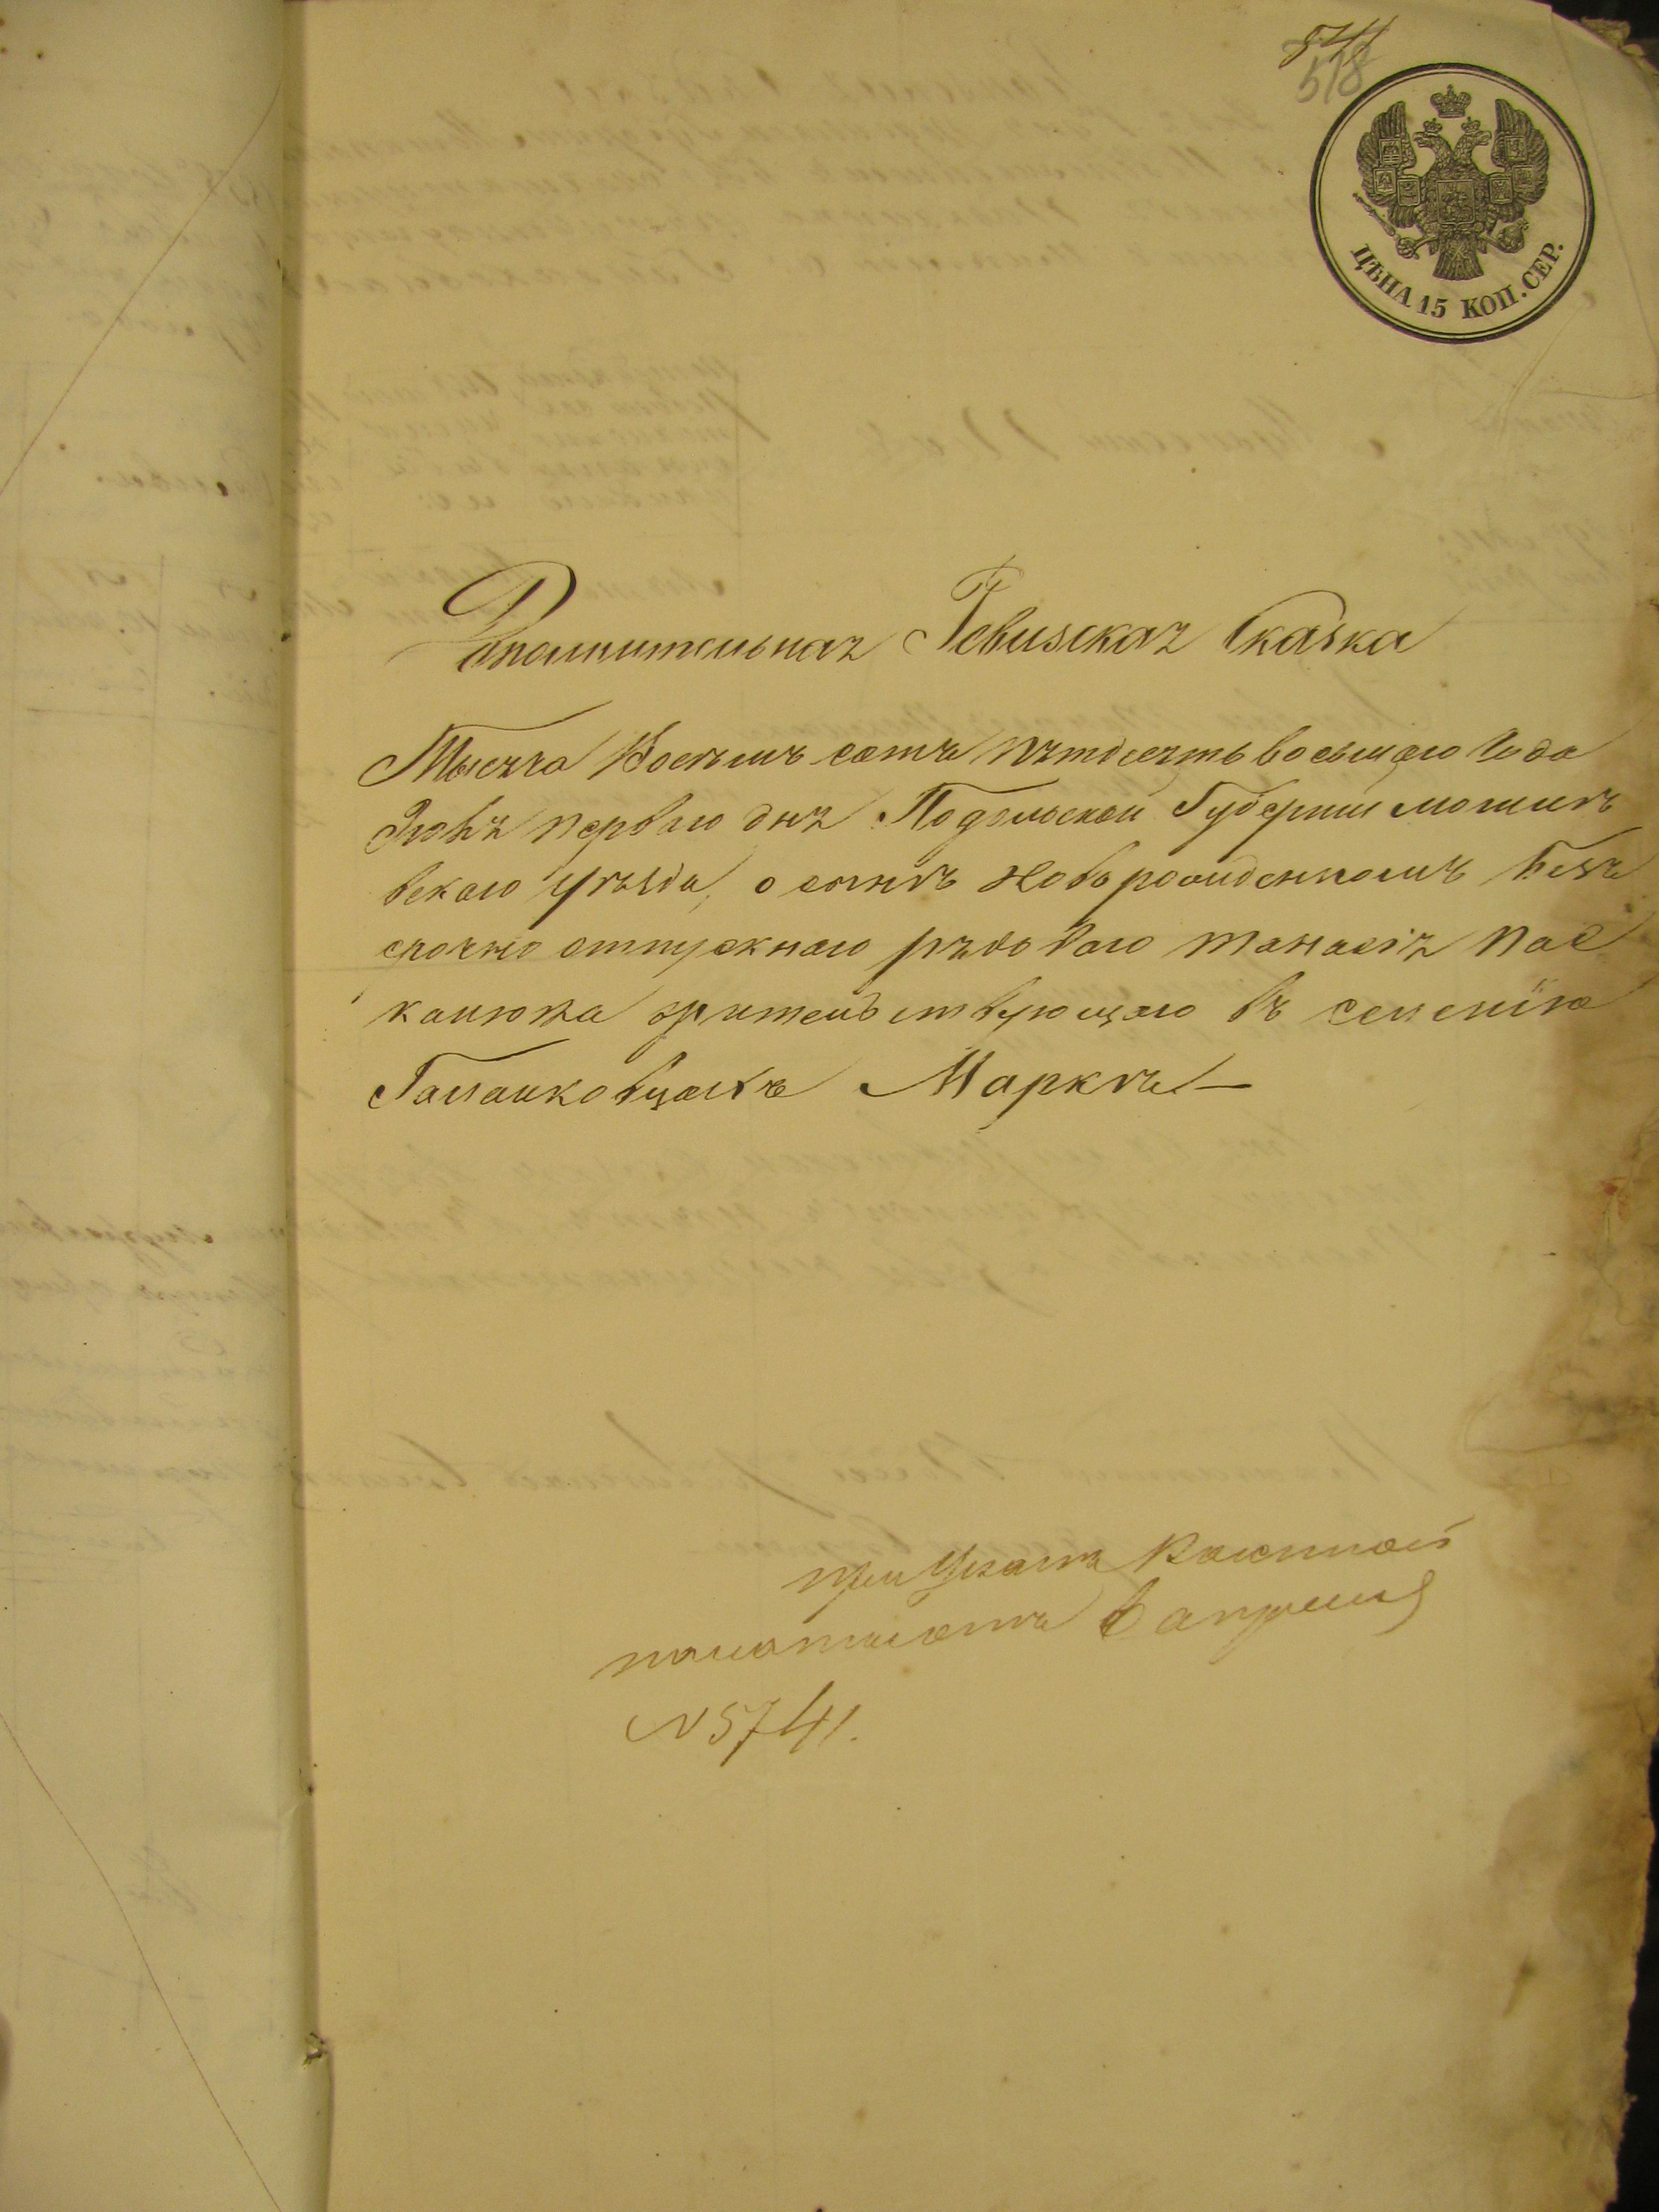 544
518
ЦѢНА 15 КОП. СЕР.
Дополнительная Ревизская Сказка
Тысяча Восемъ сотъ пятдесять восьмого Года
Июня первого дня Подольской Губернии Могилѣ
вского уѣзда, о сынѣ новорожденномъ безъ
срочно отпускного рядового Танасія Пас
калюка жительствующаго въ селеніи
Галайковцахъ Маркѣ —
при Указѣ Казенной
палаты отъ 8 апреля
№ 5741.